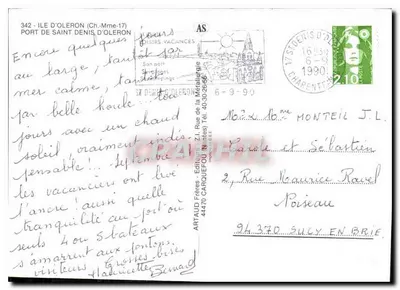 342 - ILE D'OLERON (Ch.-Mme-17)
PORT DE SAINT DENIS D'OLERON
Encore quelques jours
au large, tantôt par
mer calme, tantôt
par belle houle... tou
jours avec un chaud
soleil vraiment indis-
pensable! Septembre
les vacanciers ont levé
l'ancre! aussi quelle
tranquilité au port où
seuls 4 ou 5 bateaux
s'amarrent aux pontons,
visiteurs. Grosses bises
Bernard
AS
6-9-90
17 ST DENIS D'OLERON
6-9
1990
2,10
ARTAUD Frères - Editeurs - Z.I. Rue de la Métallurgie
44470 CARQUEFOU (Nantes) Tél. 40-30-25-56
Mr & Mme MONTEIL J.L.
Carole et Sébastien
Rue Maurice Ravel
94370 SUCY EN BRIE